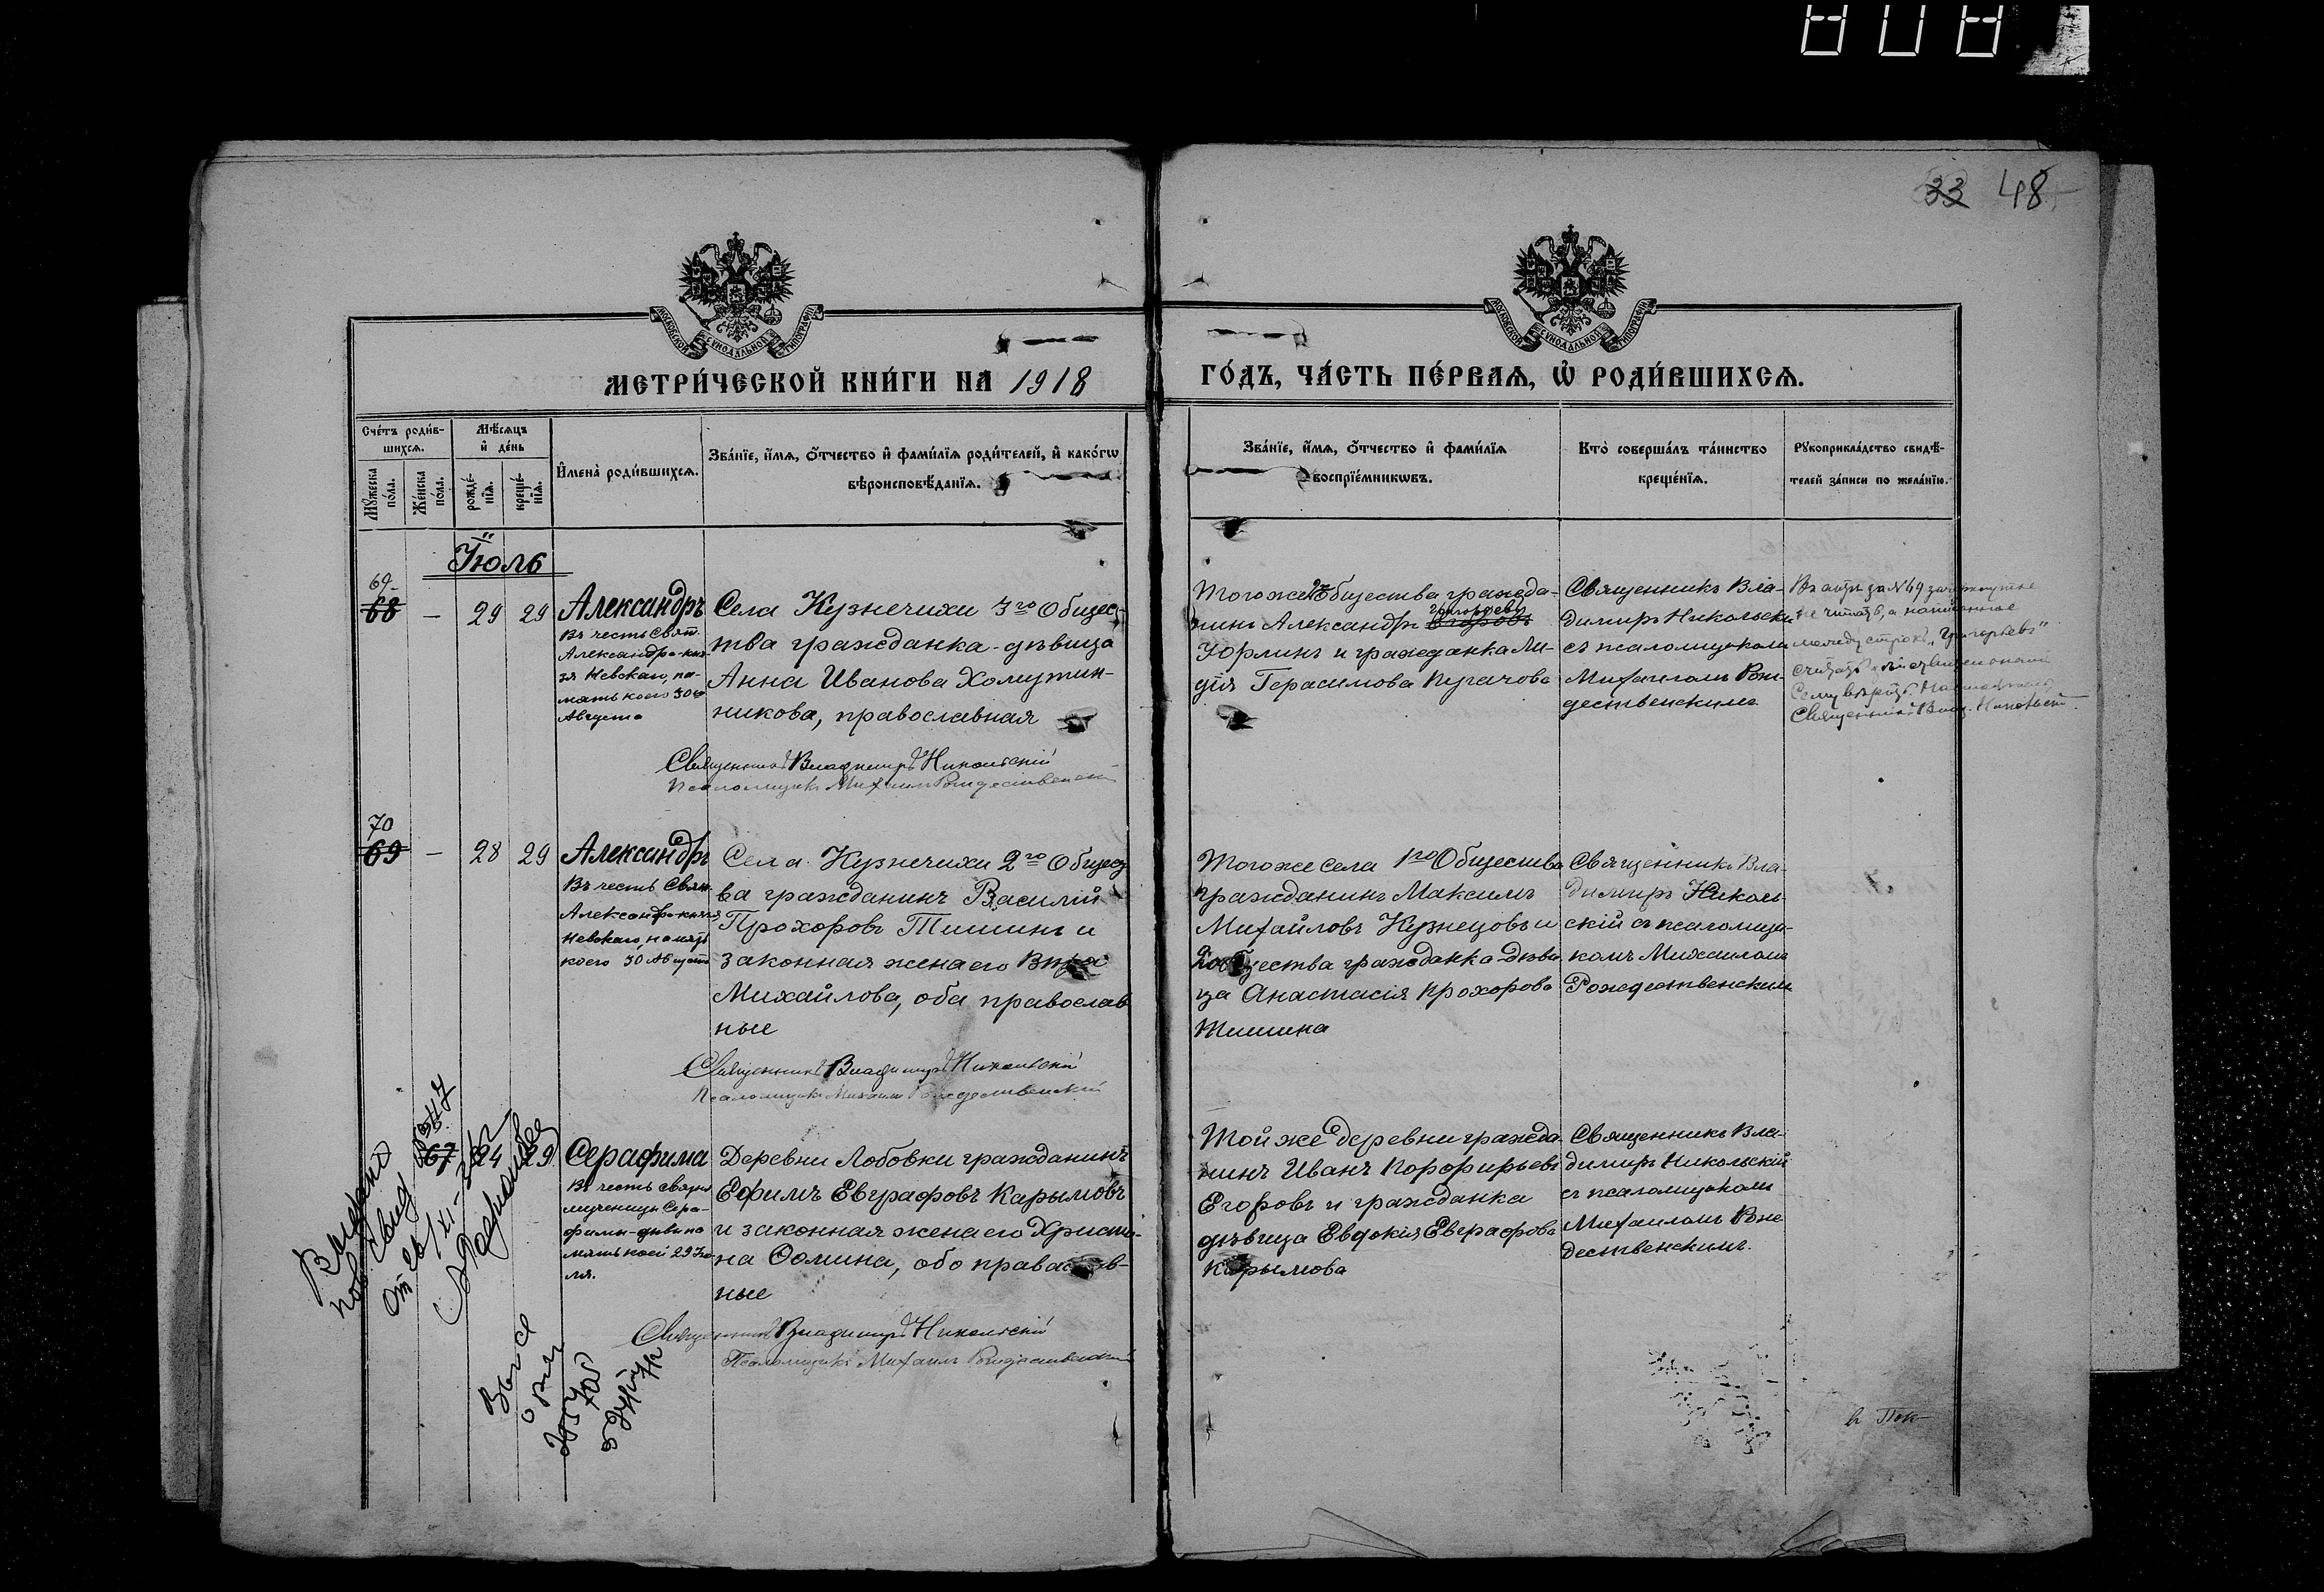 808
33 48
МОСКОВСКОЙ СУНОДАЛЬНОЙ ТИПОГРАФІИ
МОСКОВСКОЙ СУНОДАЛЬНОЙ ТИПОГРАФІИ
МЕТРИ́ЧЕСКОЙ КНИ́ГИ НА 1918
ГО́ДЪ, ЧА́СТЬ ПЕ́РВАѦ, Ѡ҆ РОДИ́ВШИХСѦ.
Сче́тъ роди́в-
шихсѧ.
Мꙋ́жеска
по́ла.
Же́нска
по́ла.
Мѣ́сѧцъ
и҆ де́нь
рожде́-
нїѧ.
креще́-
нїѧ.
И҆мена̀ роди́вшихсѧ.
Зва́нїе, и҆́мѧ, ѻ҆́тчество и҆ фами́лїѧ роди́телей, и҆ како́гѡ
вѣроисповѣ́данїѧ.
Зва́нїе, и҆́мѧ, ѻ҆́тчество и҆ фами́лїѧ
воспрїе́мникѡвъ.
Кто̀ соверша́лъ та́инство
креще́нїѧ.
Рꙋкоприкла́дство свидѣ́-
телей за́писи по жела́нїю.
Іюль
69
68 — 29 29
Александръ
Въ честь Свят.
Александра-кня-
зя Невскаго, па-
мять коего 30го
Августа
Села Кузнечихи 3го Общес-
тва гражданка-дѣвица
Анна Иванова Хомутин-
никова, православная
Священникъ Владимиръ Никольскій
Псаломщикъ Михаилъ Рождественскій
Тогоже Общества гражда-
нинъ Александръ Григорьевъ Егоровъ
и гражданка Ли-
дія Герасимова Пугачова
Священникъ Вла-
димиръ Никольскій
съ псаломщикомъ
Михаиломъ Рож-
дественскимъ
Въ актѣ за №69 зачеркнутое
не читать, а написанное
между строкъ „Григорьевъ“
считать
Священникъ Влад. Никольскій
70
69 — 28 29
Александръ
Въ честь Свят.
Александра-князя
Невскаго, память
коего 30 Августа
Села Кузнечихи 2го Общест
ва гражданинъ Василій
Прохоровъ Тишинъ и
законная жена его Вѣра
Михайлова, оба православ
ные
Священникъ Владимиръ Никольскій
Псаломщикъ Михаилъ Рождественскій
Тогоже села 1го Общества
гражданинъ Максимъ
Михайловъ Кузнецовъ и
2го Общества гражданка-дѣви
ца Анастасія Прохорова
Тишина
Священникъ Вла-
димиръ Николь-
скій съ псаломщи-
комъ Михаиломъ
Рождественскимъ
67 24 29
Серафима
Въ честь святыя
мученицы Сера-
фимы-дѣвы па
мять коей 29 Ію-
ля.
Деревни Лобовки гражданинъ
Ефимъ Евграфовъ Карымовъ
и законная жена его Христи-
на Ѳомина, оба православ-
ные
Священникъ Владимиръ Никольскій
Псаломщикъ Михаилъ Рождественскій
Той же деревни гражда-
нинъ Иванъ Порфирьевъ
Егоровъ и гражданка
дѣвица Евдокія Евграфова
Карымова
Священникъ Вла-
димиръ Никольскій
съ псаломщикомъ
Михаиломъ Рож-
дественскимъ.
Выдано
пов. свид